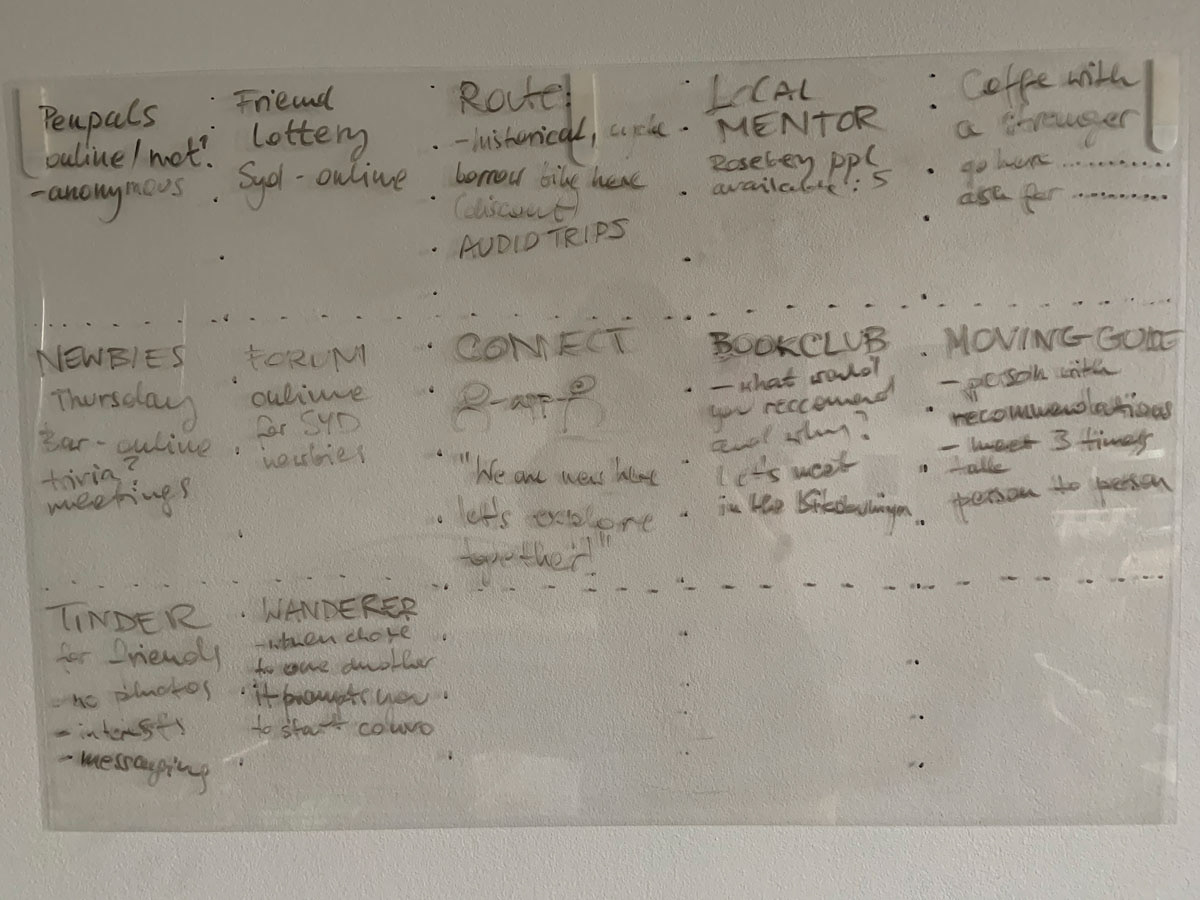 Penpals
online/not?
-anonymous
Friend
Lottery
Syd - online
ROUTE:
-historical, cycle
borrow bike here
(discount)
AUDIO TRIPS
LOCAL
MENTOR
Rosebery ppl
available: 5
Coffe with
a stranger
go here ............
ask for ............
NEWBIES
Thursday
Bar - online
trivia?
meetings
FORUM
online
for SYD
newbies
CONNECT
-app-
"We are new here
let's explore
together!"
BOOKCLUB
- what would
you reccomend
and why?
Let's meet
in the
MOVING-GUIDE
- person with
recommendations
- meet 3 times
talk
person to person
TINDER
for friends
- no photos
- interests
- messaging
WANDERER
-when close
to one another
it prompts you
to start convo